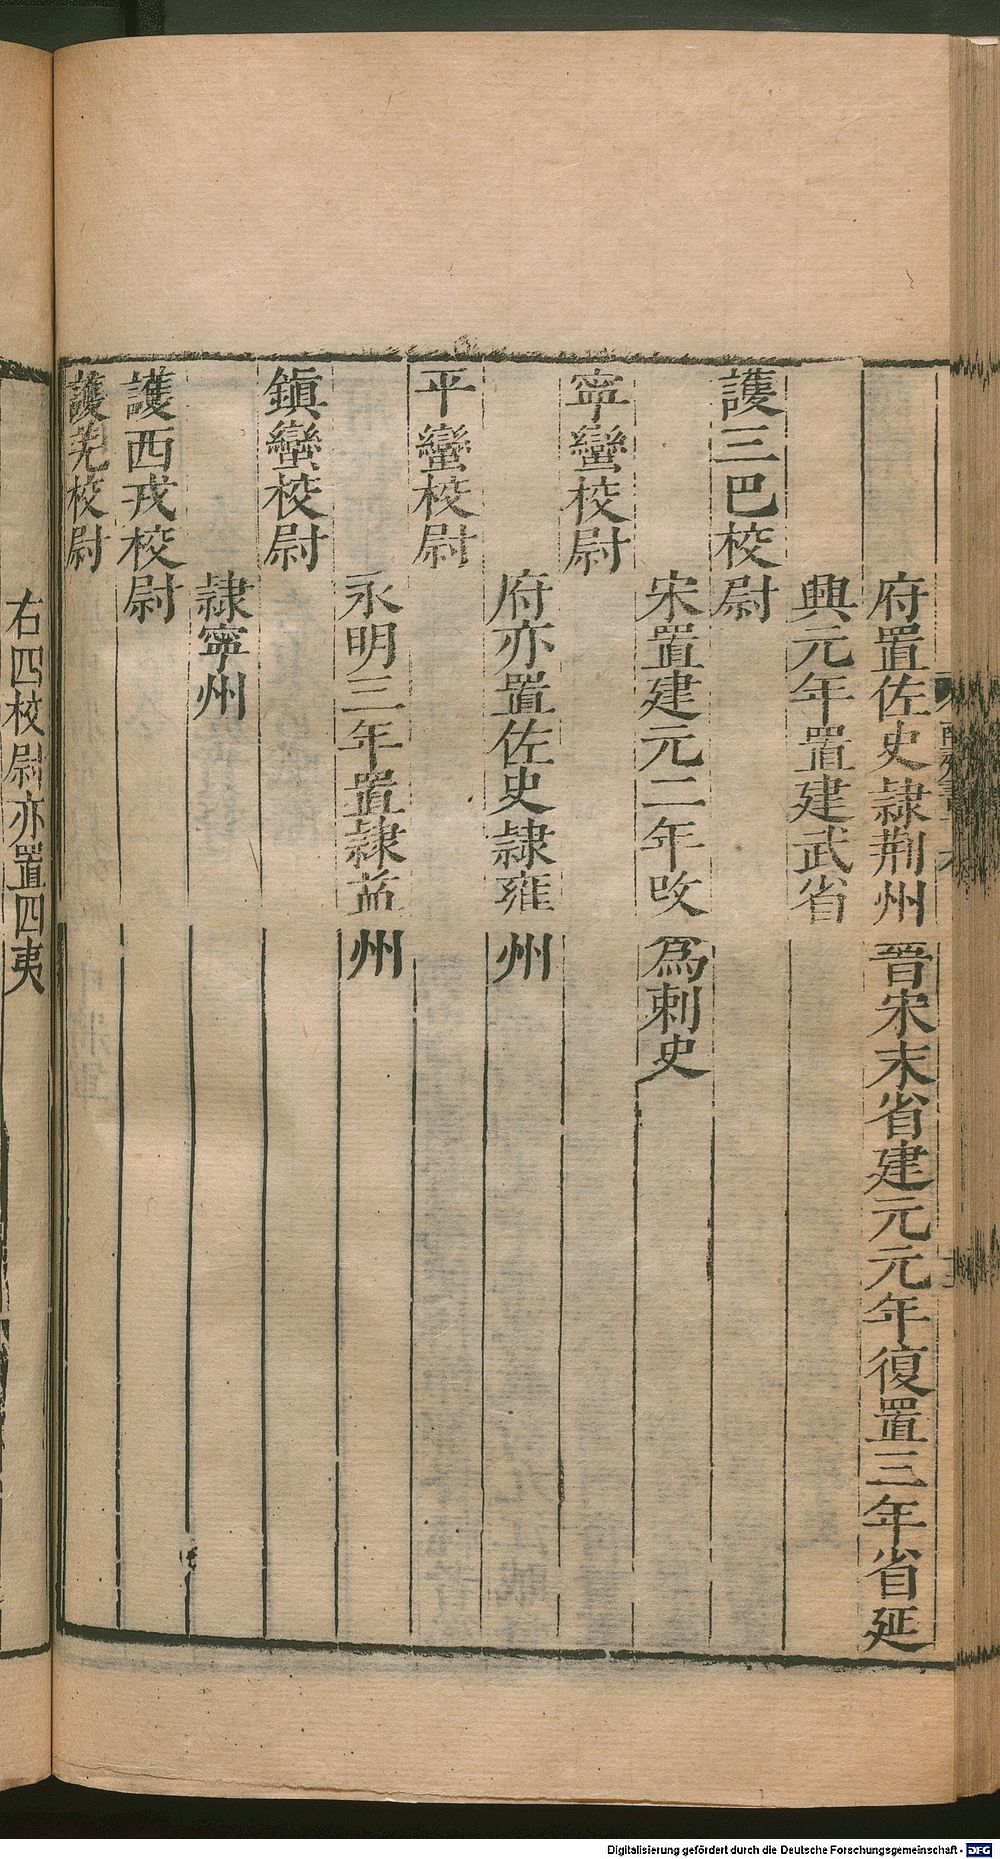 府置佐史隷荆州晋宋末省建元元年復置三年省延
興元年置建武省
護三巴校尉
宋置建元二年改爲刺史
寧蠻校尉
府亦置佐史隷雍州
平蠻校尉
永明三年置隷益州
鎮蠻校尉
隷寧州
護西戎校尉
護羌校尉
右四校尉亦置四夷
Digitalisierung gefördert durch die Deutsche Forschungsgemeinschaft - DFG